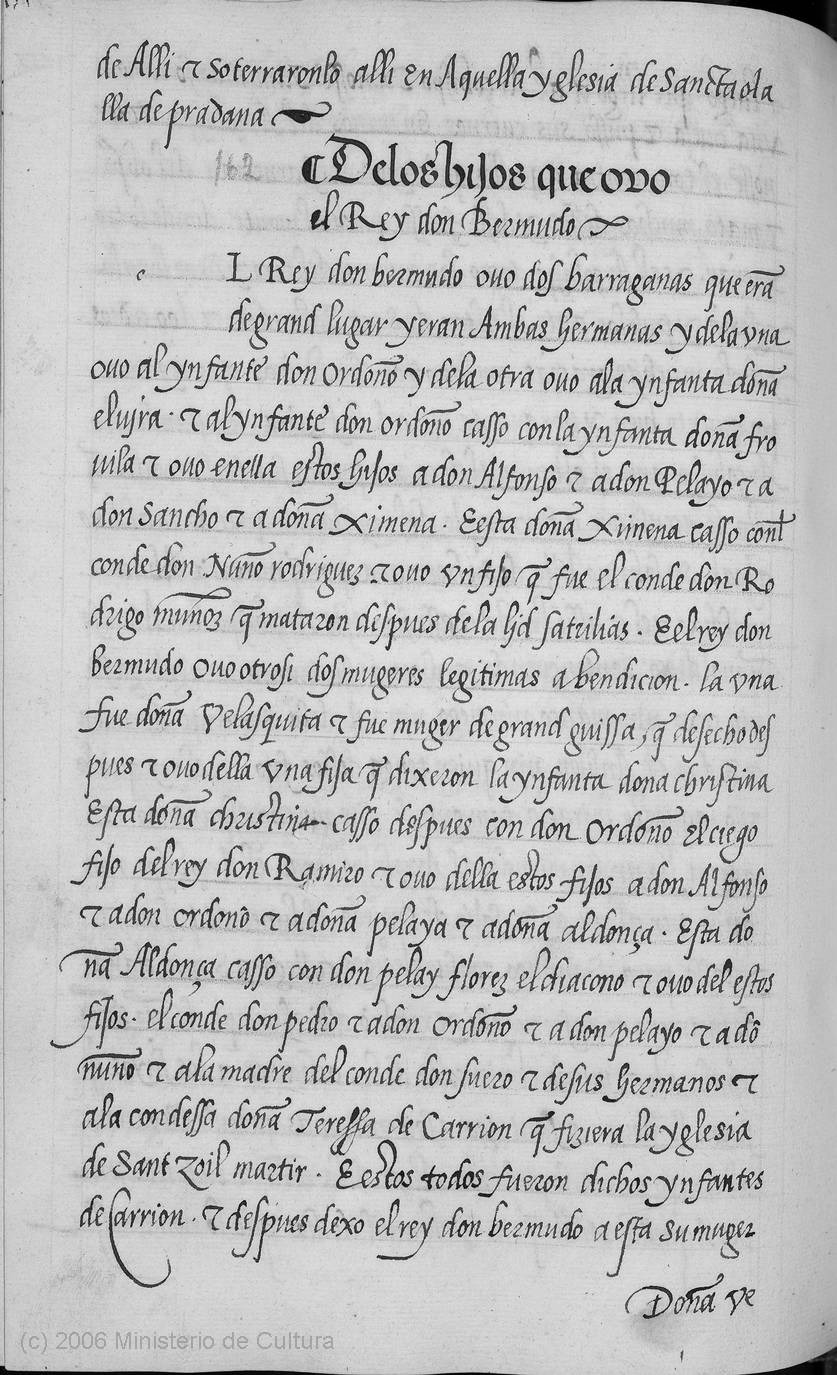 de Alli τ soterraronlo alli en Aquella yglesia de Sancta ola
lla de pradana
162
¶ De los hijos que ovo
el Rey don Bermudo
L Rey don bermudo ovo dos barraganas que erā
de grand lugar y eran Ambas hermanas y de la vna
ovo al ynfante don Ordoño y de la otra ovo ala ynfanta doña
elvira · τ al ynfante don ordoño casso con la ynfanta doña fro
vila τ ovo enella estos hijos a don Alfonso τ a don Pelayo τ a
don Sancho τ a doña Ximena · E esta doña Ximena casso con̄l
conde don Nuño rodriguez τ ovo vn fijo q̄ fue el conde don Ro
drigo muñoz q̄ mataron despues de la ljd satrilias · E el rey don
bermudo Ovo otrosi dos mugeres legitimas a bendicion · la vna
fue doña Velasquita τ fue muger de grand guissa, q̄ desecho des
pues τ ovo della vna fija q̄ dixeron la ynfanta dona christina
Esta doña christina casso despues con don Ordoño El ciego
fijo del rey don Ramiro τ ovo della estos fijos a don Alfonso
τ a don ordoño τ a doña pelaya τ a doña aldonça · Esta do
ña Aldonça casso con don pelay florez el diacono τ ovo del estos
fijos · el conde don pedro τ a don Ordoño τ a don pelayo τ a dō
nuño τ a la madre del conde don suero τ de sus hermanos τ
a la condessa doña Teressa de Carrion q̄ fiziera la yglesia
de Sant zoil martir · E estos todos fueron dichos ynfantes
de Carrion · τ despues dexo el rey don bermudo a esta su muger
Doña ve
(c) 2006 Ministerio de Cultura